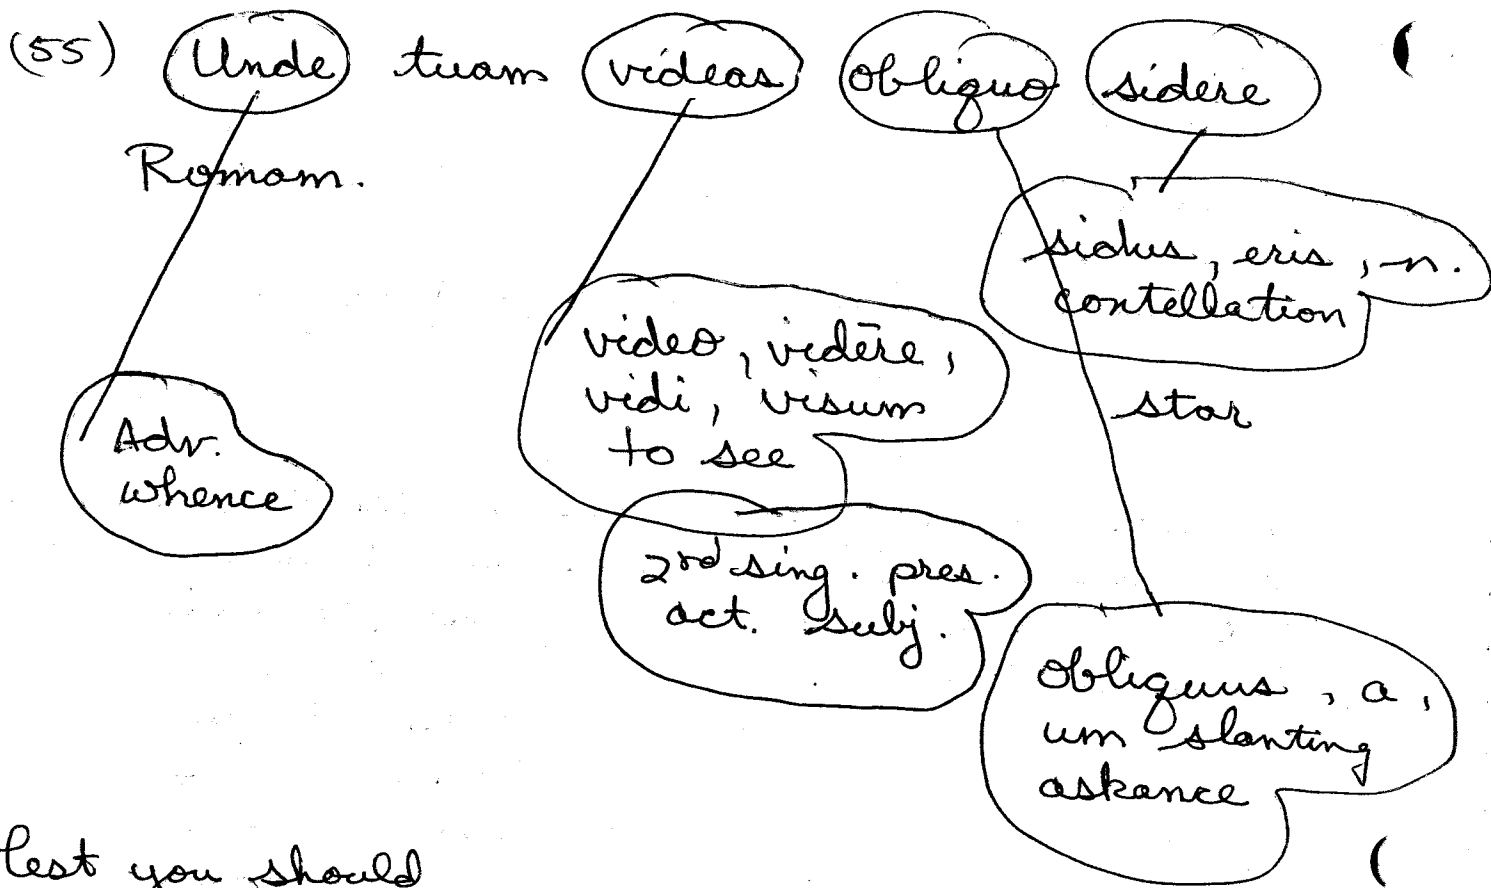 (55) Unde tuam videas obliquo sidere
Romam.
sidus, eris, n.
contellation
video, vidēre,
vidi, visum
to see
star
Adv.
whence
2nd sing. pres.
act. subj.
obliquus, a,
um slanting
askance
lest you should